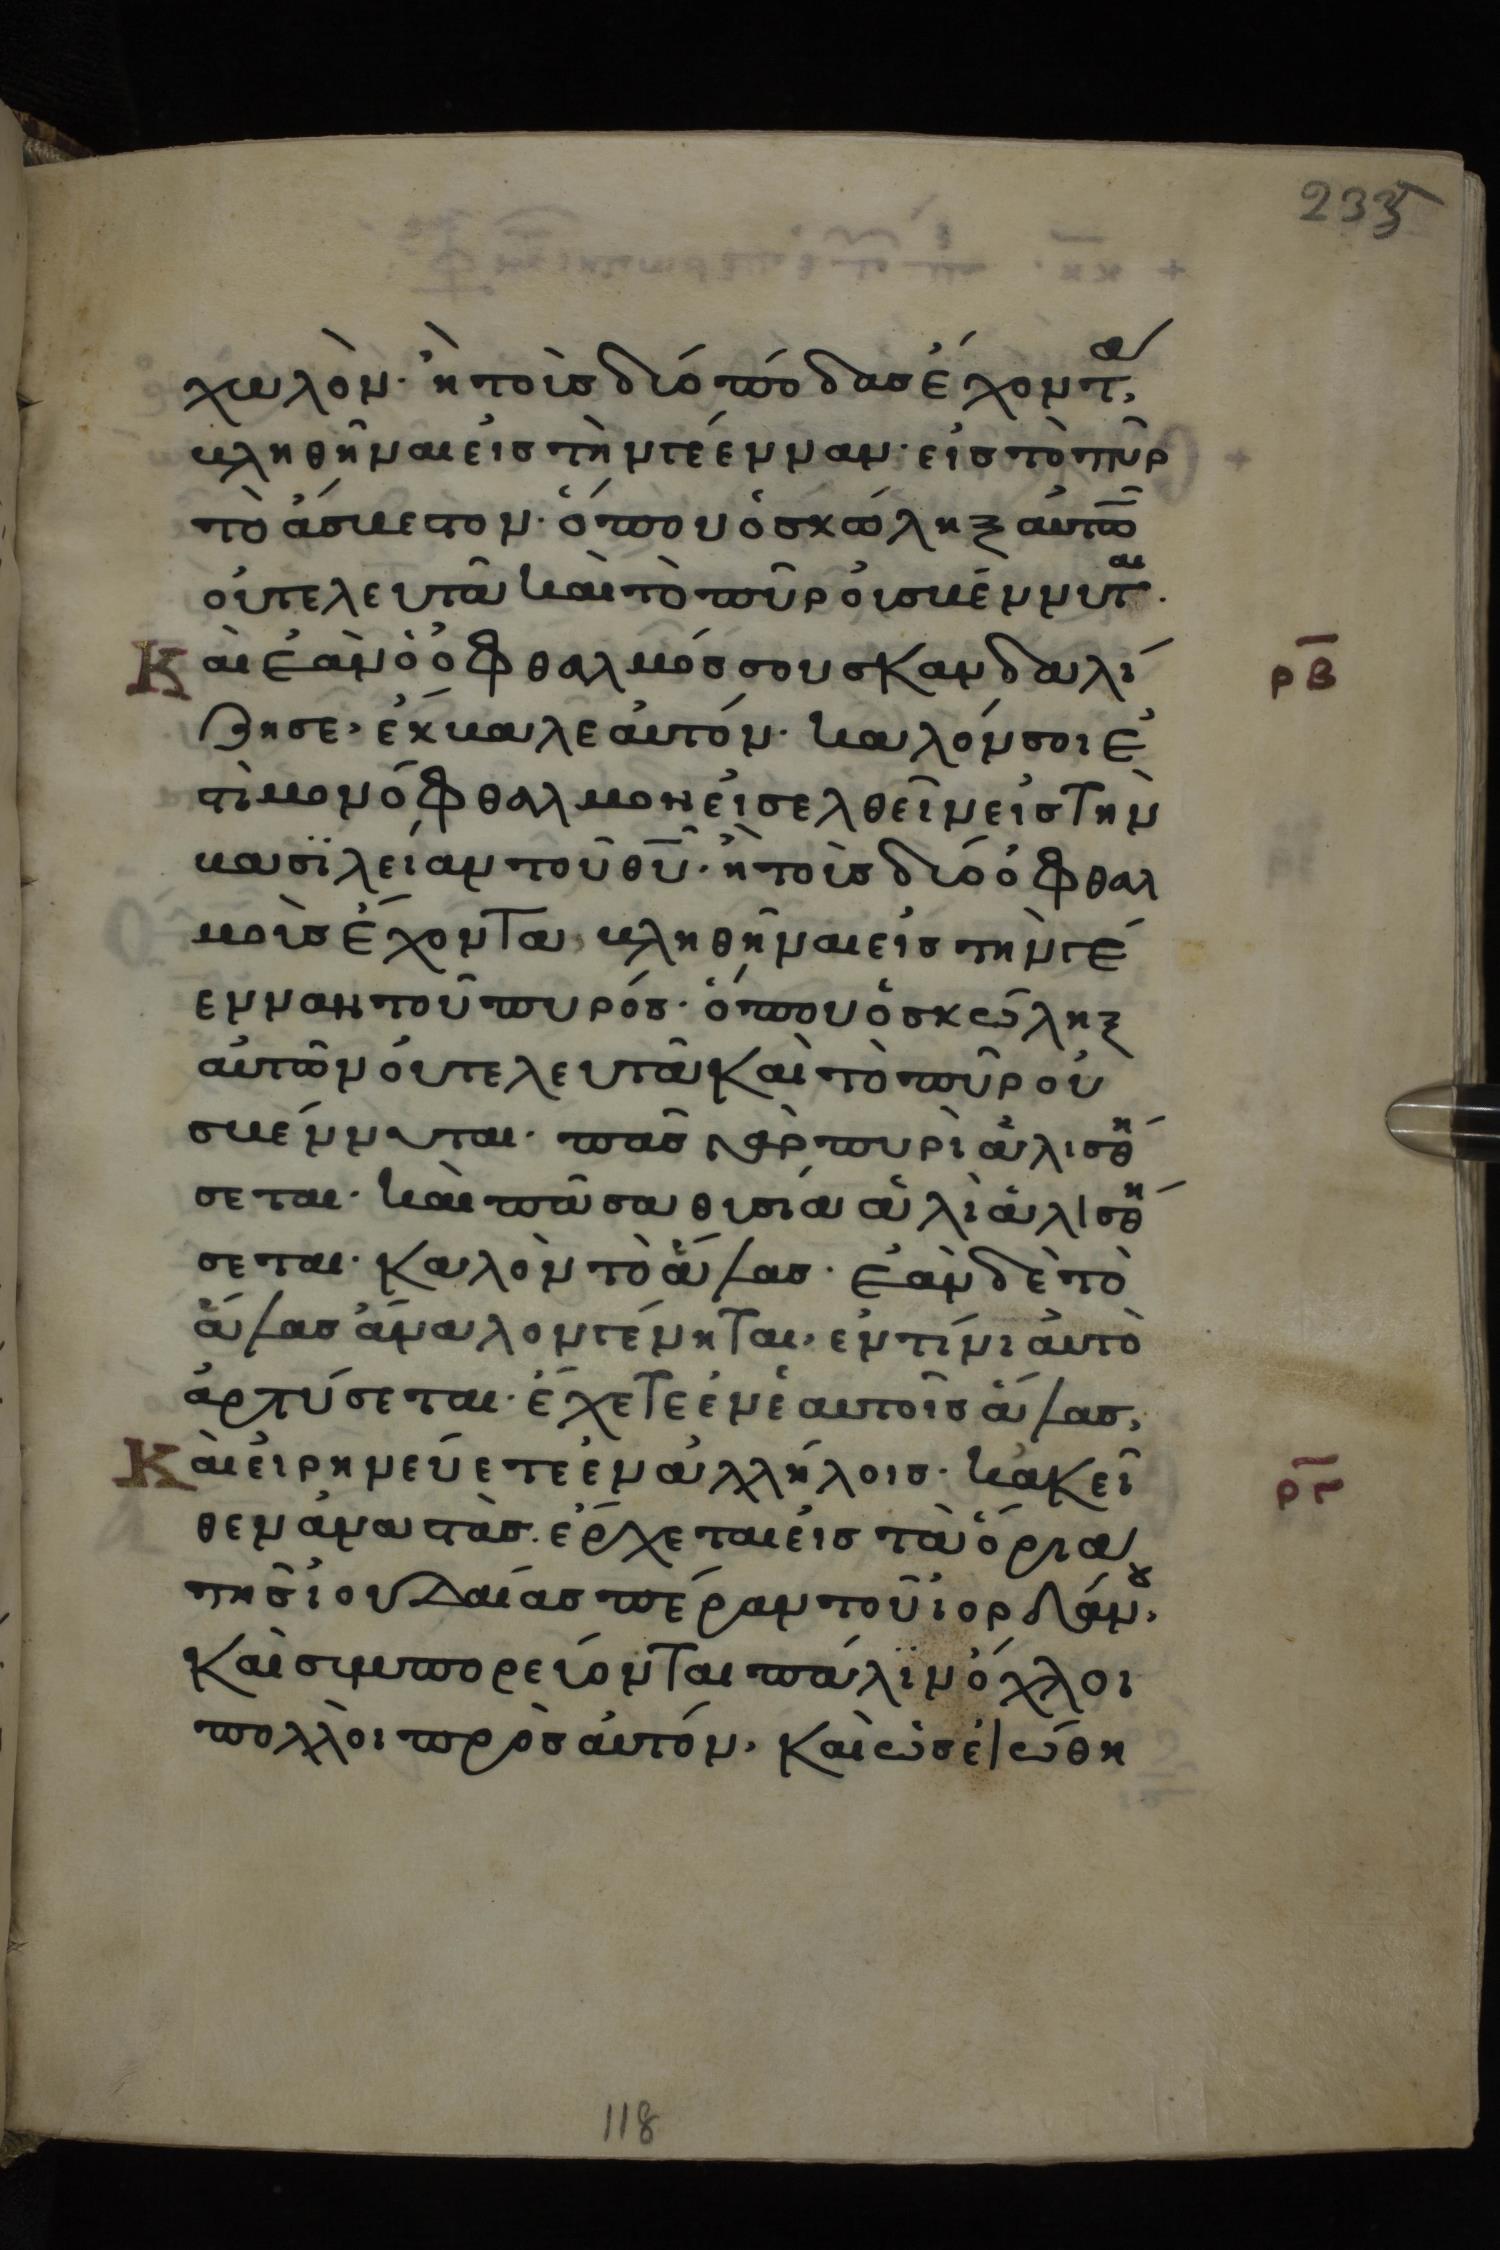 235
χωλὸν· ἢ τοὺς δύο πόδας ἔχοντα,
βληθῆναι εἰς τὴν γέενναν· εἰς τὸ πῦρ
τὸ ἄσβεστον· ὅπου ὁ σκώληξ αὐτῶ
οὐ τελευτᾶ καὶ τὸ πῦρ οὐ σβέννυται.
Καὶ ἐὰν ὁ ὀφθαλμός σου σκανδαλί
ζη σε, ἔκβαλε αὐτόν· καλόν σοι ἐ
στὶ μονόφθαλμον εἰσελθεῖν εἰς τὴν
βασϊλείαν τοῦ θυ̅· ἢ τοὺς δύο ὀφθαλ
μοὺς ἔχοντα, βληθῆναι εἰς τὴν γέ
ενναν τοῦ πυρός· ὅπου ὁ σκώληξ
αὐτῶν οὐ τελευτᾶ καὶ τὸ πῦρ οὐ
σβέννυται· πᾶς γὰρ πυρὶ ἁλισθή
σεται· καὶ πᾶσα θυσία ἁλὶ ἁλισθή
σεται· καλὸν τὸ ἅλας· ἐὰν δὲ τὸ
ἅλας ἄναλον γένηται, ἐν τίνι αὐτὸ
ἀρτύσεται· ἔχετε ἐν ἑαυτοῖς ἅλας,
Καὶ εἰρηνεύετε ἐν ἀλλήλοις· κἀκεῖ
θεν ἀναστὰς· ἔρχεται εἰς τὰ ὅρια
τῆς ἰουδαίας πέραν τοῦ ἰορδάνου,
καὶ συμπορεύονται πάλϊν ὄχλοι
πολλοὶ πρὸς αὐτόν, καὶ ὡς εἰώθη
ρβ̅
ργ̅
118